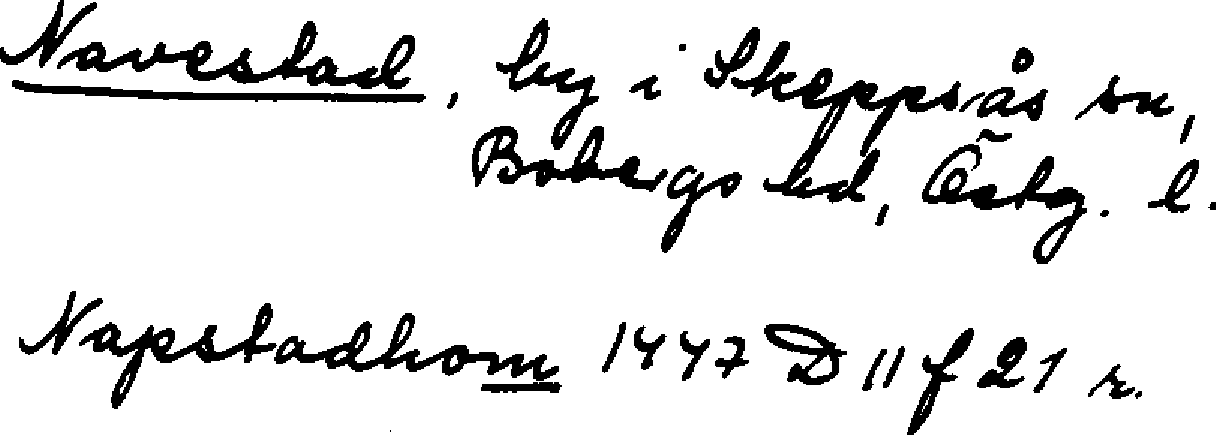 Navestad, by i Skeppsås sn,
Bobergs hd, Östg. l.
Napstadhom 1447 D 11 f 21 r.